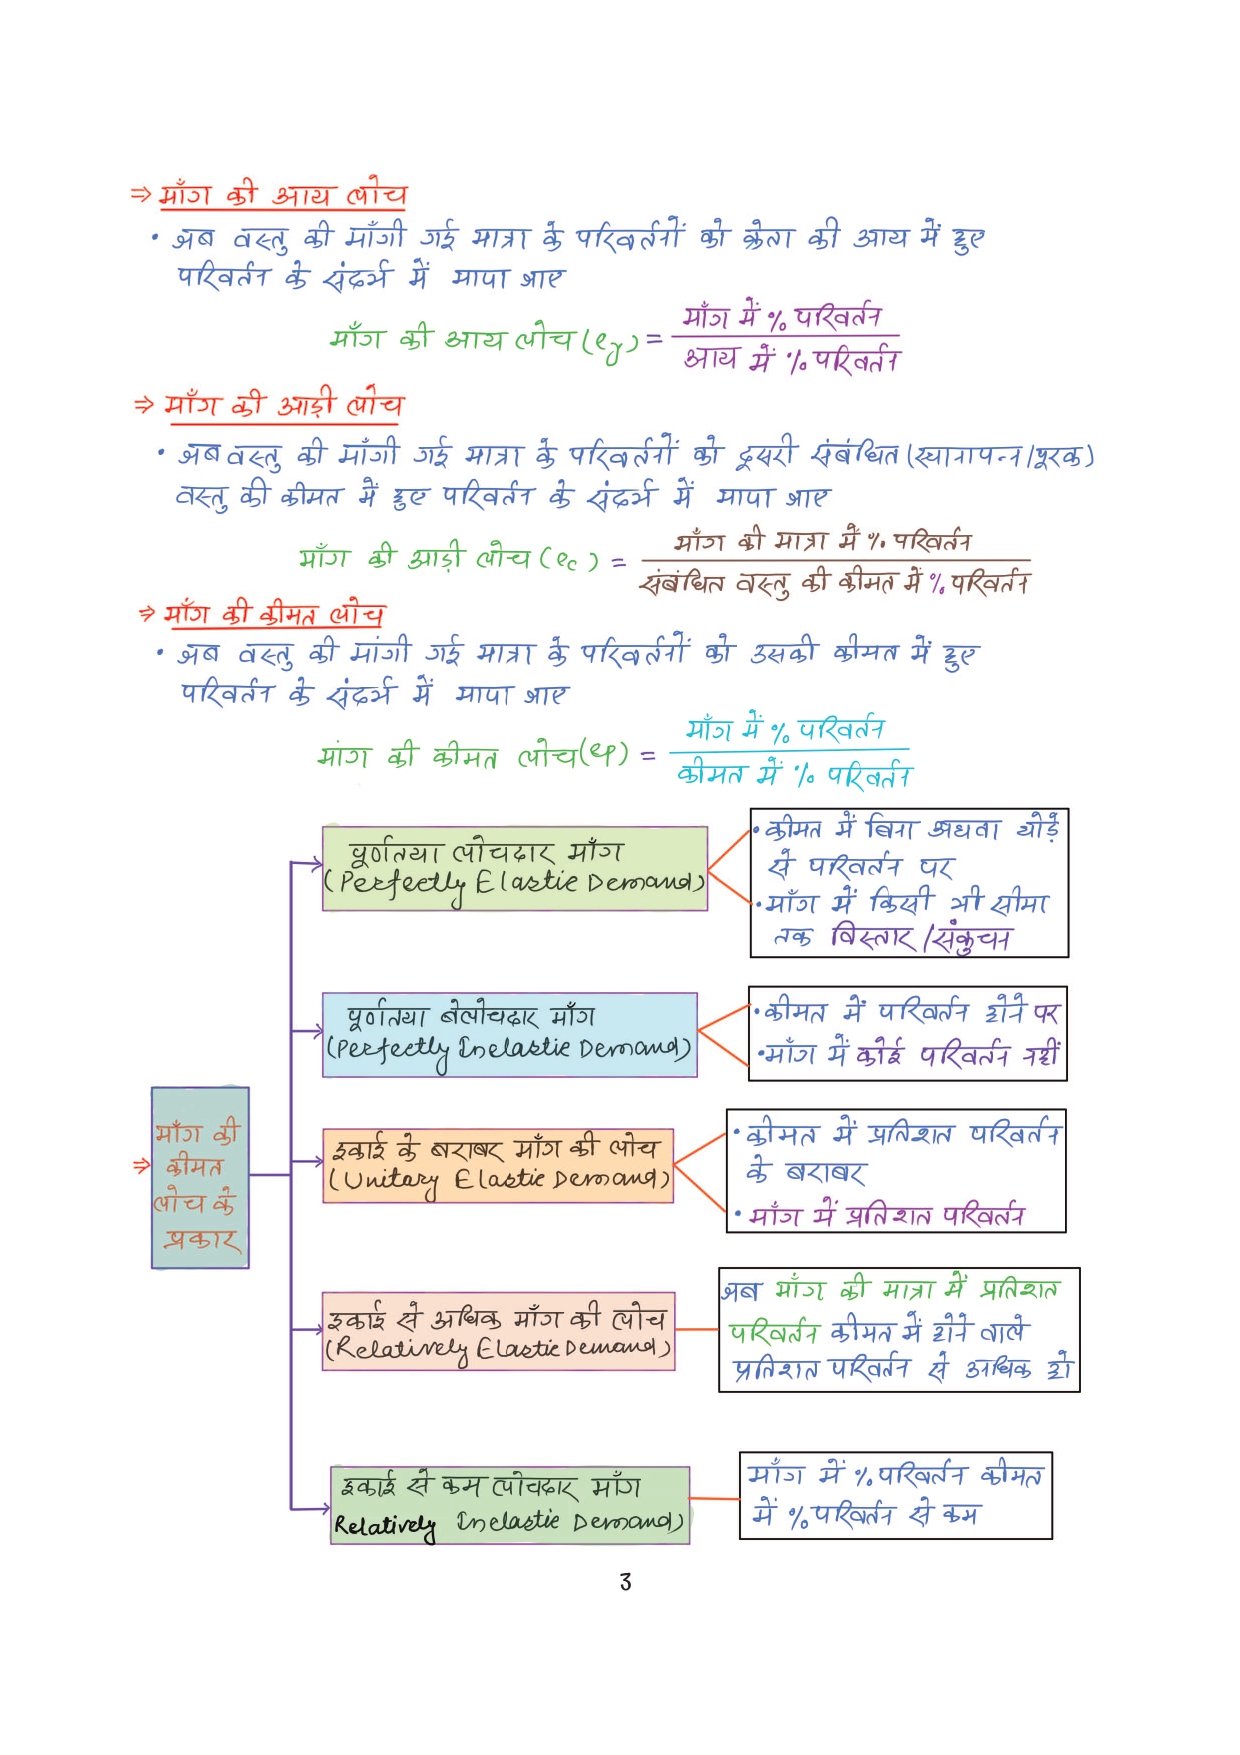 ⇒ माँग की आय लोच
• जब वस्तु की माँगी गई मात्रा के परिवर्तनों को क्रेता की आय में हुए
परिवर्तन के संदर्भ में मापा जाए
माँग की आय लोच (ey) = माँग में % परिवर्तन
आय में % परिवर्तन
⇒ माँग की आड़ी लोच
• जब वस्तु की माँगी गई मात्रा के परिवर्तनों को दूसरी संबंधित (स्थानापन्न/पूरक)
वस्तु की कीमत में हुए परिवर्तन के संदर्भ में मापा जाए
माँग की आड़ी लोच (ec) = माँग की मात्रा में % परिवर्तन
संबंधित वस्तु की कीमत में % परिवर्तन
⇒ माँग की कीमत लोच
• जब वस्तु की मांगी गई मात्रा के परिवर्तनों को उसकी कीमत में हुए
परिवर्तन के संदर्भ में मापा जाए
मांग की कीमत लोच (ep) = माँग में % परिवर्तन
कीमत में % परिवर्तन
⇒ माँग की
कीमत
लोच के
प्रकार
पूर्णतया लोचदार माँग
(Perfectly Elastic Demand)
• कीमत में बिना अथवा थोड़े
से परिवर्तन पर
• माँग में किसी भी सीमा
तक विस्तार/संकुचन
पूर्णतया बेलोचदार माँग
(Perfectly Inelastic Demand)
• कीमत में परिवर्तन होने पर
• माँग में कोई परिवर्तन नहीं
इकाई के बराबर माँग की लोच
(Unitary Elastic Demand)
• कीमत में प्रतिशत परिवर्तन
के बराबर
• माँग में प्रतिशत परिवर्तन
इकाई से अधिक माँग की लोच
(Relatively Elastic Demand)
जब माँग की मात्रा में प्रतिशत
परिवर्तन कीमत में होने वाले
प्रतिशत परिवर्तन से अधिक हो
इकाई से कम लोचदार माँग
Relatively Inelastic Demand)
माँग में % परिवर्तन कीमत
में % परिवर्तन से कम
3